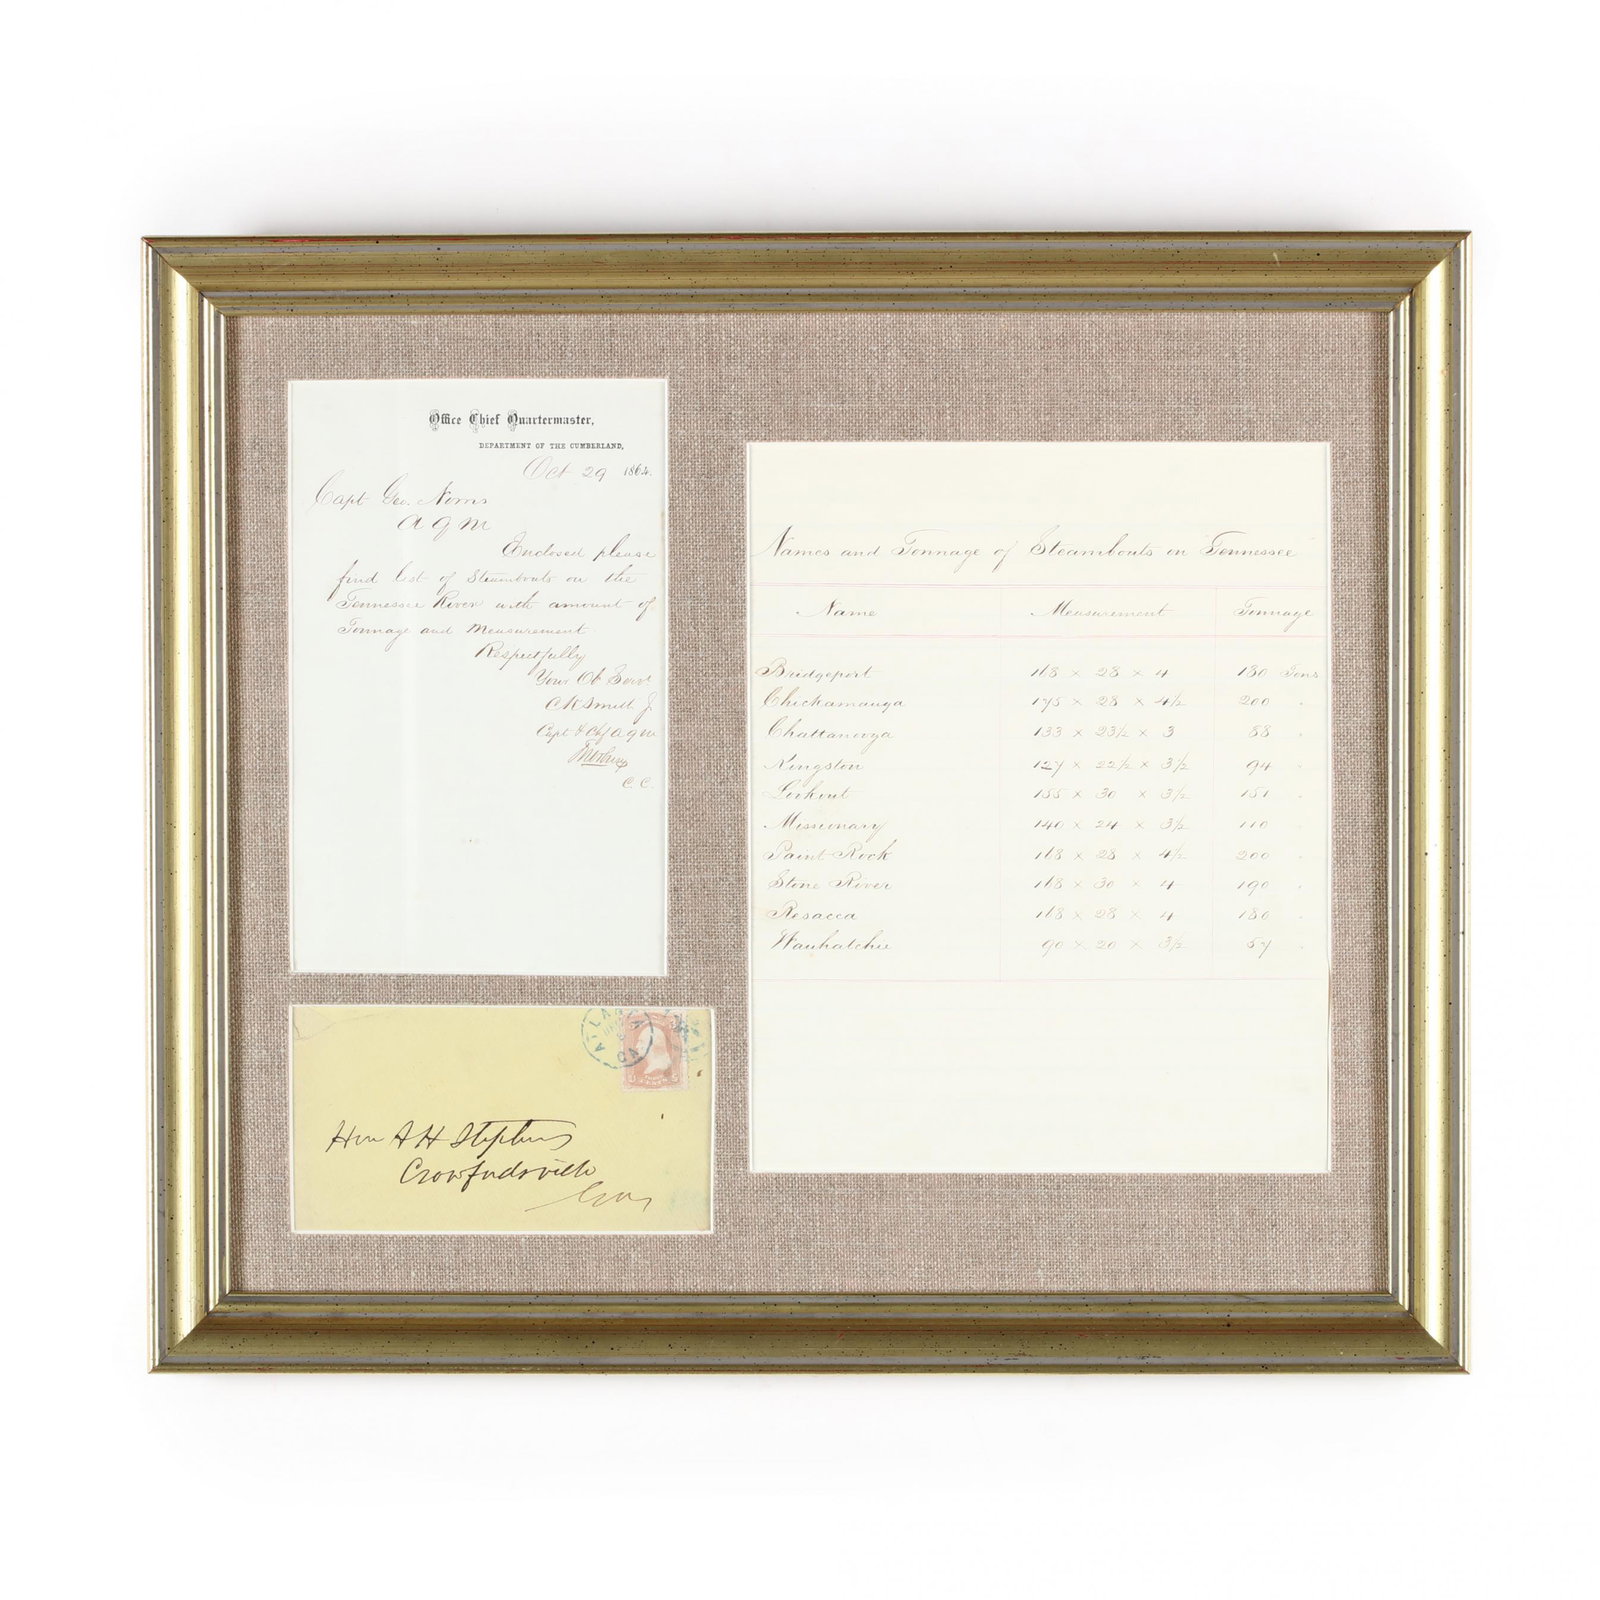 Office Chief Quartermaster,
DEPARTMENT OF THE CUMBERLAND,
Oct 29 1864.
Capt Geo. Norris
A Q M
Enclosed please
find list of Steamboats on the
Tennessee River with amount of
Tonnage and Measurement.
Respectfully
Your Ob Servt
C K Smith Jr
Capt & Chf A Q M
C. C.
Names and Tonnage of Steamboats on Tennessee
Name Measurement Tonnage
Bridgeport 168 x 28 x 4 180 Tons
Chickamauga 175 x 28 x 4½ 200 "
Chattanooga 133 x 23½ x 3 88 "
Kingston 127 x 22½ x 3½ 94 "
Lookout 155 x 30 x 3½ 151 "
Missionary 140 x 24 x 3½ 110 "
Paint Rock 168 x 28 x 4½ 200 "
Stone River 168 x 30 x 4 190 "
Resacca 168 x 28 x 4 180 "
Wauhatchie 90 x 20 x 3½ 57 "
ATLANTA
GA
THREE
CENTS
Hon A H Stephens
Crawfordsville
Geo,